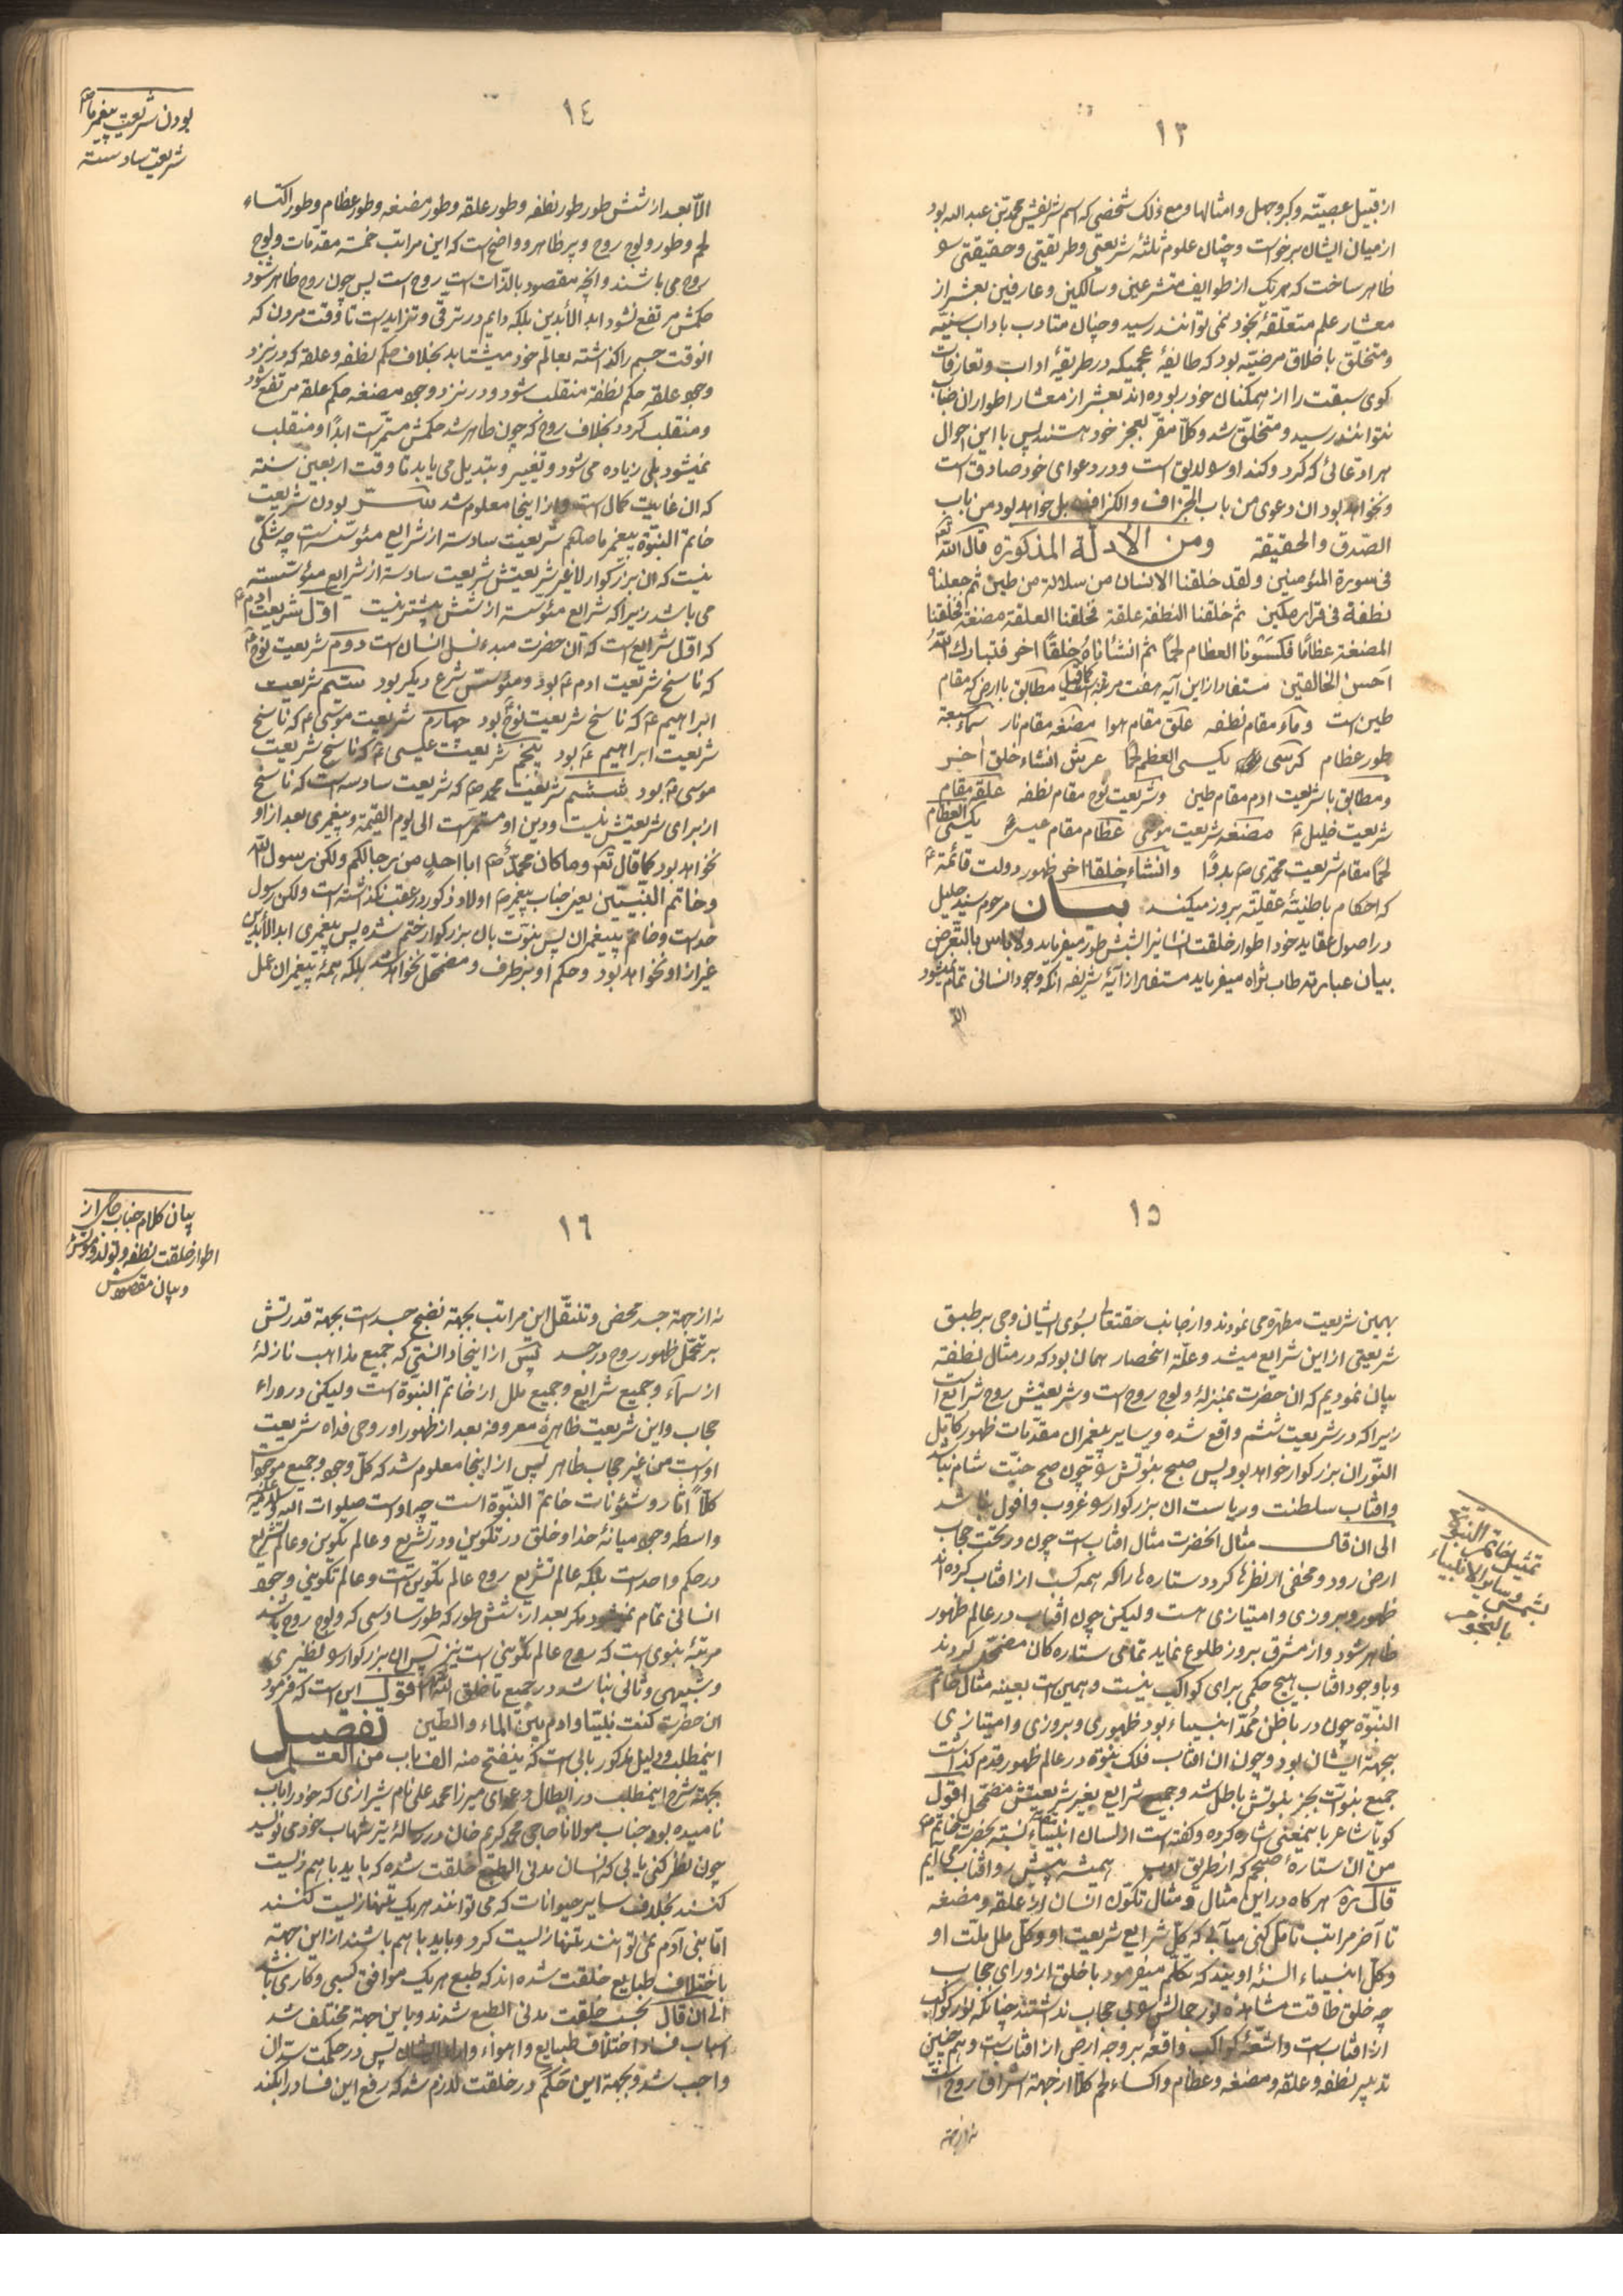 ١٣
از قبیل عصبیّته و کبر و جهل و امثالها و مع ذلک شخصی که اسم شریفش محمد بن عبد الله بود
از میان ایشان برخواست و چنان علوم ثلثهٔ شریعتی و طریقتی و حقیقتی
ظاهر ساخت که هر یک از طوایف متشرعین و سالکین و عارفین بعشر از
معشار علم متعلّقهٔ بخود نمی توانند رسید و چنان متادب باداب سنیّه
و متخلق باخلاق مرضیّه بود که طایفهٔ عجمیکه در طریقهٔ اداب و تعارفات
کوی سبقت را از همکنان خود ربوده اند بعشر از معشار اطوار ان جناب
نتوانند رسید و متخلّق شد و کلاّ مقرّ بعجز خود هستند پس با این احوال
هر ادعائی که کرد و کند او را لایق است و در دعوای خود صادق است
و نخواهد بود ان دعوی من باب الجزاف و الکزافه بل خواهد بود من باب
الصّدق و الحقیقته ومن الأدلة المذکوره قال الله تع
فی سورة المؤمنین ولقد خلقنا الانسان من سلالة من طین ثم جعلناه
نطفة فی قرار مکین ثم خلقنا النطفة علقة فخلقنا العلقة مضغة فخلقنا
المضغة عظامًا فکسونا العظام لحمًا ثم انشأناه خلقًا اخر فتبارک الله
احسن الخالقین مستفاد از این آیه هفت مرتبه مطابق با ارض که مقام
طین است و ماء مقام نطفه علق مقام هوا مضغه مقام نار سماء سبعة
طور عظام کرسی یکسی العظم لحمًا عرش انشاء خلق اخر
و مطابق با شریعت ادم مقام طین و شریعت نوح مقام نطفه علقه مقام
شریعت خلیل ع مضغه شریعت موسی عظام مقام عیسی یکسی العظام
لحمًا مقام شریعت محمّدی ص بدوًا و انشاء خلقا اخر ظهور دولت قائمه
که احکام باطنیّه عقلیّه بروز میکند بیـان مرحوم سید جلیل
در اصول عقاید خود اطوار خلقت انسانی را بشش طور میفرماید و لا باس بالتّعرض
بیان عبارته طاب ثراه میفرماید مستفاد از آیهٔ شریفه انکه وجود انسانی تمام نمیشود
الاّ
بودن شریعت پیغمبر ما ص
شریعت سادسته
١٤
الاّ بعد از شش طور طور نطفه و طور علقه و طور مضغه و طور عظام و طور اکتساء
لحم و طور ولوج روح و پر ظاهر و واضح است که این مراتب خمسه مقدّمات ولوج
روح می باشند و انچه مقصود بالذّات است روح است پس چون روح ظاهر شود
حکمش مرتفع نشود ابد الأبدین بلکه دایم در ترقی و تزاید است تا وقت مردن که
انوقت جسم را کذاشته بعالم خود میشتابد بخلاف حکم نطفه و علقه که در نزد
وجود علقه حکم نطفه منقلب شود و در نزد وجود مضغه حکم علقه مرتفع شود
و منقلب کردد بخلاف روح که چون ظاهر شد حکمش مستمرّ است ابدًا و منقلب
نمیشود بلی زیاده می شود و تغییر و تبدیل می یابد تا وقت اربعین سنته
که ان غایت کمال است و از اینجا معلوم شد سرّ بودن شریعت
خاتم النبوّة پیغمبر ما صلعم شریعت سادسته از شرایع مؤسّسته چه شکّی
نیست که ان بزرکوار لا غیر شریعتش شریعت سادسته از شرایع مؤسّسته
می باشد زیرا که شرایع مؤسسه از شش بیشتر نیست اوّل شریعت ادم ع
که اوّل شرایع است که آن حضرت مبدء نسل انسان است دوم شریعت نوح ع
که ناسخ شریعت ادم ع بود و مؤسّس شرع دیکر بود سیّم شریعت
ابراهیم ع که ناسخ شریعت نوح ع بود چهارم شریعت موسی ع که ناسخ
شریعت ابراهیم ع بود پنجم شریعت عیسی ع که ناسخ شریعت
موسی ع بود ششم شریعت محمد ص که شریعت سادسه است که ناسخ
از برای شریعتش نیست و دین او مستمرّ است الی یوم القیمة و پیغمبری بعد از او
نخواهد بود کما قال تع و ما کان محمّد ص ابا احد من رجالکم ولکن رسول الله
و خاتم النبیّین یعنی جناب پیغمبر ص اولاد ذکور در عقب نکذاشته است ولکن رسول
خداست و خاتم پیغمبران پس نبوّت بان بزرکوار ختم شده پس پیغمبری ابد الأبدین
غیر از او نخواهد بود و حکم او بر طرف و مضمحل نخواهد شد بلکه همهٔ پیغمبران عمل
١٥
بهمین شریعت مطهّره می نمودند و از جانب حقتعالی بسوی ایشان وحی بر طبق
شریعتی از این شرایع میشد و علّة انحصار همان بود که در مثال نطفته
بیان نمودیم که ان حضرت بمنزلهٔ ولوج روح است و شریعتش روح شرایع است
زیرا که در شریعت ششم واقع شده و سایر پیغمبران مقدّمات ظهور کامل
النّور ان بزرکوار خواهد بود پس صبح نبوّتش را چون صبح جنّت شام نباشد
و افتاب سلطنت و ریاست ان بزرکوار را غروب و افول نباشد
الی ان قال مثال انحضرت مثال افتاب است چون در تحت حجاب
ارض رود و مخفی از نظرها کردد ستاره ها را که همه کسب از افتاب کرده اند
ظهور و بروزی و امتیازی هست ولیکن چون افتاب در عالم ظهور
ظاهر شود و از مشرق بروز طلوع نماید تمامی ستاره کان مضمحل کردند
و با وجود افتاب هیچ حکمی برای کواکب نیست و همین است بعینه مثال خاتم
النبّوة چون در باطن مُمِدّ انبیاء بود ظهوری و بروزی و امتیازی
بجهة ایشان بود و چون ان افتاب فلک نبوّة در عالم ظهور قدم کذاشت
جمیع نبوّات بجز نبوّتش باطل شد و جمیع شرایع بغیر شریعتش مضمحل اقول
کویا شاعر باینمعنی اشاره کرده و کفته است از لسان انبیاء نسبته بحضرت خاتم ص
من آن ستارهٔ صبحم که از طریق ادب همیشه پیش رو افتاب می آیم
قال سره هر کاه در این مثال و مثال تکوّن انسان از علقه و مضغه
تا آخر مراتب تأمّل کنی میابی که کلّ شرایع شریعت او و کلّ ملل ملّت او
و کلّ انبیاء السنهٔ اویند که تکلّم میفرمود با خلق از ورای حجاب
چه خلق طاقت مشاهدهٔ نور جمالش را بی حجاب نداشتند چنانکه نور کواکب
از افتاب است و اشعّهٔ کواکب واقعهٔ بر وجه ارض از افتاب است و همچنین
تدبیر نطفه و علقه و مضغه و عظام و اکساء لحم کلاّ از جهة اشراق روح است
نه از جهته
تمثیل خاتم النبوّة
و سایر الانبیاء
بشمس
بالنجوم
بیان کلام جناب
اطوار خلقت نطفه و تولد
و بیان مقصودش
١٦
نه از جهة جسد محض و تنقّل این مراتب بجهة نضج جسد است بجهة قدرتش
بر تحمّل ظهور روح در جسد پس از اینجا دانستی که جمیع مذاهب نازلهٔ
از سماء و جمیع شرایع و جمیع ملل از خاتم النبّوة است ولیکن در وراء
حجاب و این شریعت ظاهرهٔ معروفه بعد از ظهور او روحی فداه شریعت
اوست من غیر حجاب ظاهر پس از اینجا معلوم شد که کلّ وجود و جمیع موجودات
کلاًّ اثار و شؤنات خاتم النبّوة است چه اوست صلوات الله علیه
واسطه وجود میانهٔ خدا و خلق در تکوین و در تشریع و عالم تکوین و عالم تشریع
در حکم واحد است بلکه عالم تشریع روح عالم تکوین است و عالم تکوینی وجود
انسانی تمام نمیشود مکر بعد از شش طور که طور سادسی که ولوج روح باشد
مرتبهٔ نبوی است که روح عالم تکوینی است نیز پس ان بزرکوار را نظیری
و شبیهی و ثانی نباشد در جمیع ما خلق الله اقول این است که فرمود
ان حضرت کنت نبیّا و ادم بین الماء و الطّین تفصیل
اینمطلب و دلیل مذکور بابی است که ینفتح منه الف باب من العلم
بجهته شرح اینمطلب در ابطال دعوای میرزا محمد علی نام شیرازی که خود را باب
نامیده بود جناب مولانا حاجی محمد کریم خان در رسالهٔ تیر شهاب خود می نویسد
چون نظر کنی یابی که انسان مدنی الطبع خلقت شده که باید با هم زیست
کنند بخلاف سایر حیوانات که می توانند هر یک بتنها زیست کنند
اما بنی آدم نمی توانند بتنها زیست کرد و باید با هم باشند از این جهته
باختلاف طبایع خلقت شده اند که طبع هر یک موافق کسبی و کاری باشد
الی ان قال بحسب خلقت مدنی الطبع شدند و باین جهته مختلف شد
اسباب فساد اختلاف طبایع و اهواء و اراء ایشان پس در حکمت سدّ ان
واجب شد و بجهة این حَکَم در خلقت لازم شد که رفع این فساد را بکند